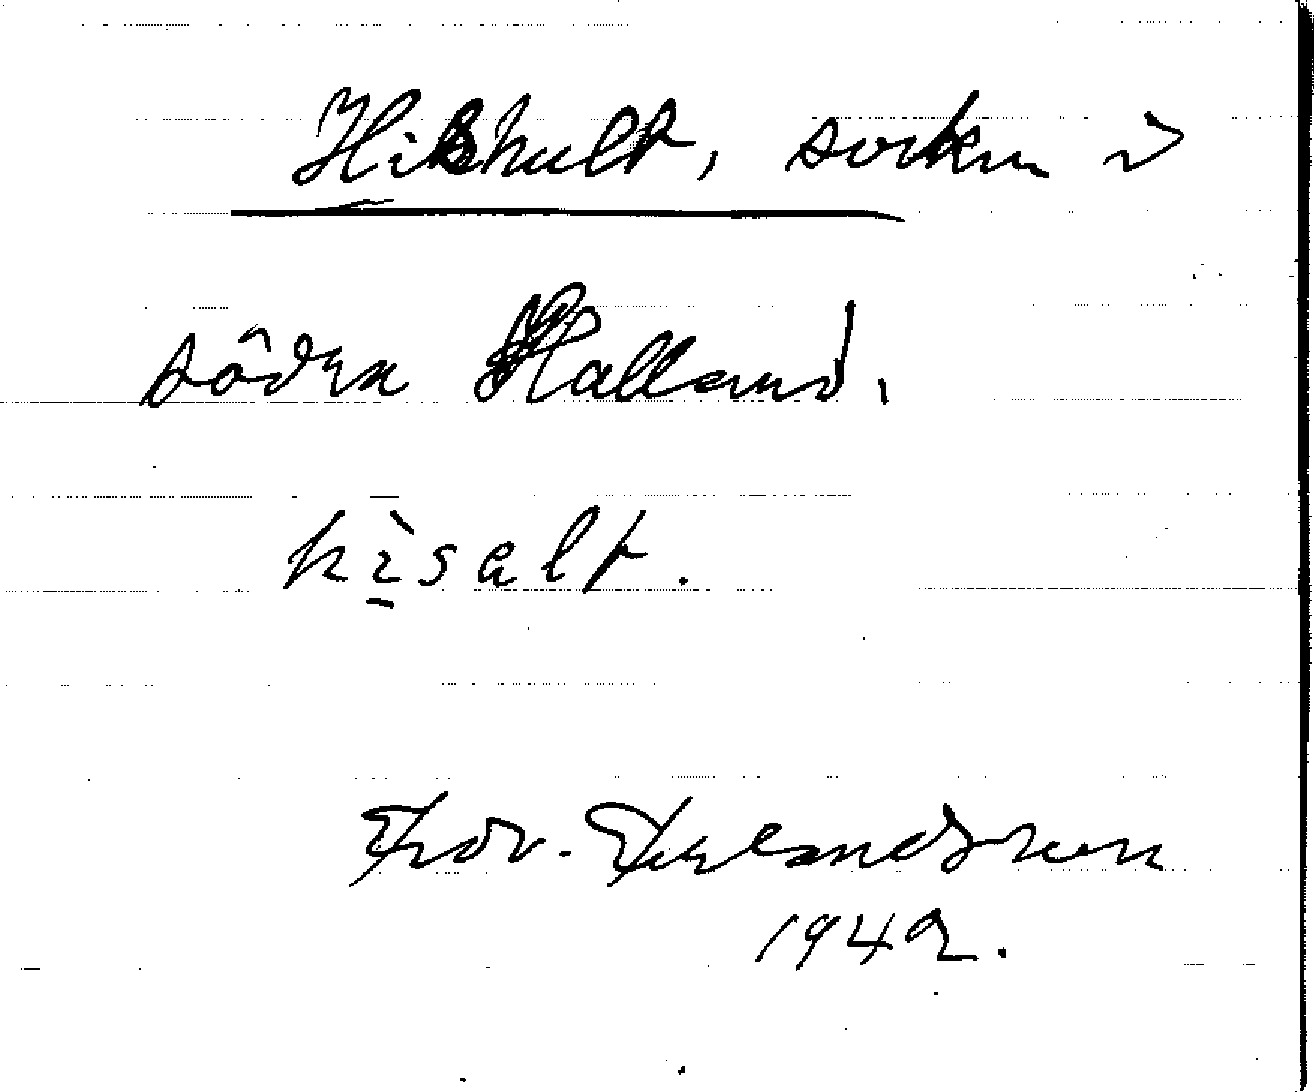 Hishult, socken i
södra Halland.
hìsalt.
1942.